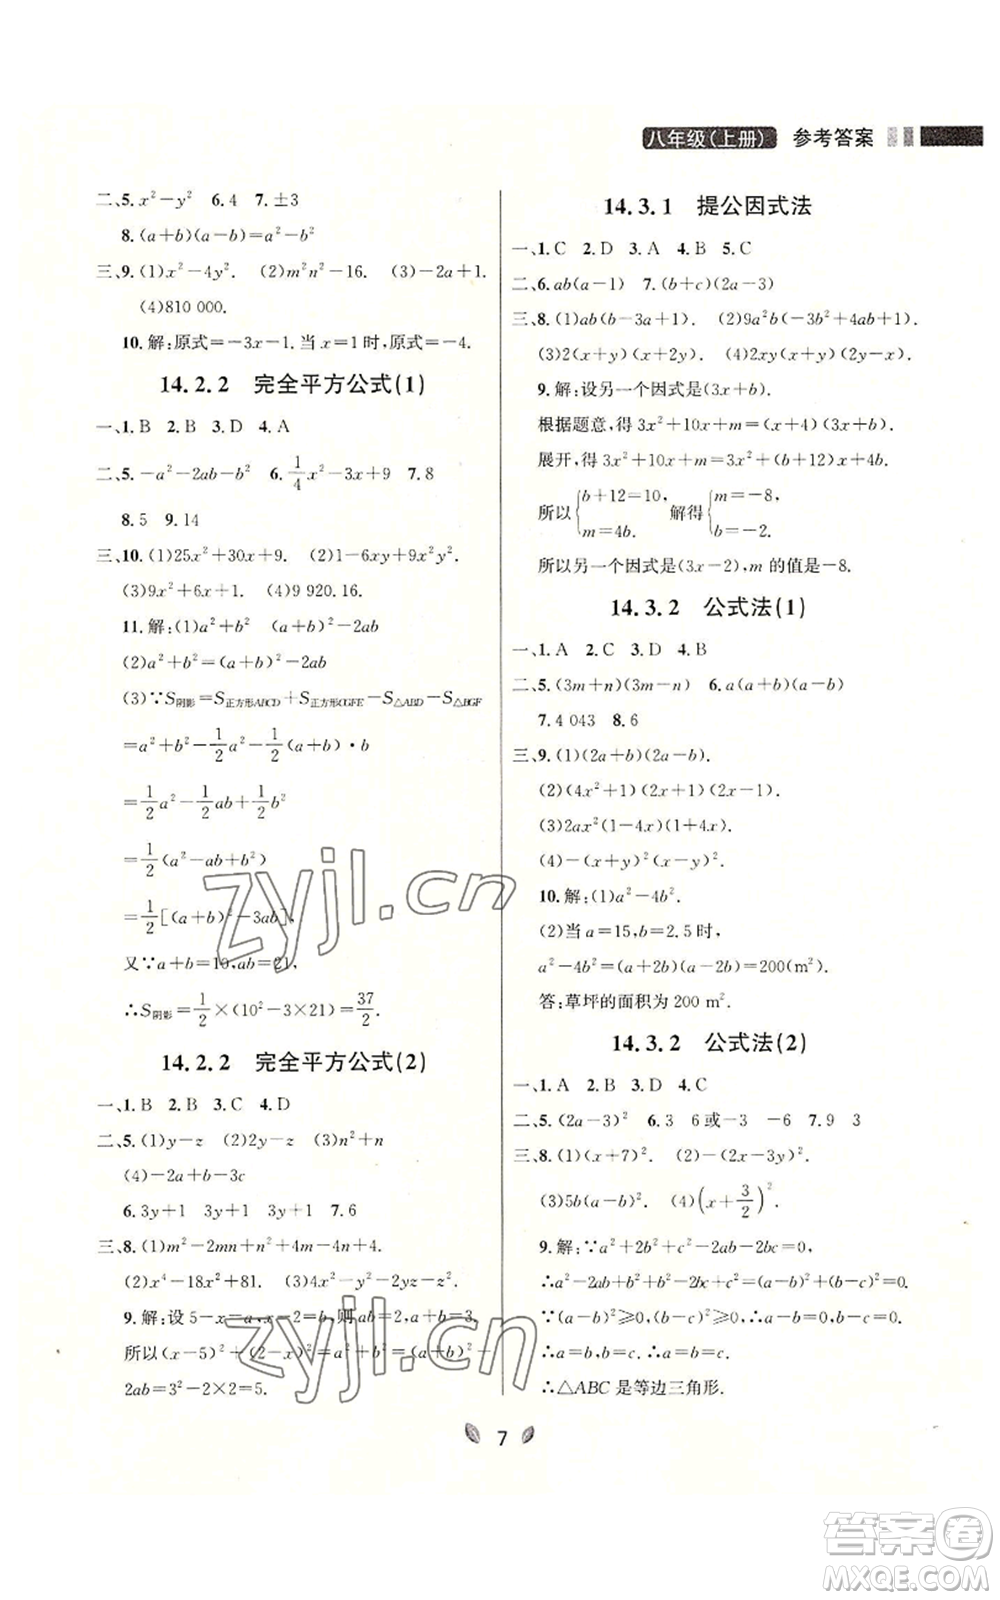 八年级(上册) 参考答案
二、5. x²-y² 6. 4 7. ±3
8. (a+b)(a-b)=a²-b²
三、9. (1)x²-4y². (2)m²n²-16. (3)-2a+1.
(4)810 000.
10. 解:原式=-3x-1. 当 x=1 时,原式=-4.
14.2.2 完全平方公式(1)
一、1. B 2. B 3. D 4. A
二、5. -a²-2ab-b² 6. 1/4x²-3x+9 7. 8
8. 5 9. 14
三、10. (1)25x²+30x+9. (2)1-6xy+9x²y².
(3)9x²+6x+1. (4)9 920.16.
11. 解:(1)a²+b² (a+b)²-2ab
(2)a²+b²=(a+b)²-2ab
(3)∵S阴影=S正方形ABCD+S正方形CGFE-S△ABD-S△BGF
=a²+b²-1/2a²-1/2(a+b)·b
=1/2a²-1/2ab+1/2b²
=1/2(a²-ab+b²)
=1/2[(a+b)²-3ab],
又∵a+b=10,ab=21,
∴S阴影=1/2×(10²-3×21)=37/2
14.2.2 完全平方公式(2)
一、1. B 2. B 3. C 4. D
二、5. (1)y-z (2)y-z (3)n²+n
(4)-2a+b-3c
6. 3y+1 3y+1 7. 6
三、8. (1)m²-2mn+n²+4m-4n+4.
(2)x⁴-18x²+81. (3)4x²-y²-2yz-z².
9. 解:设 5-x=a,x-2=b,则 ab=2,a+b=3.
所以(x-5)²+(2-x)²=a²+b²=(a+b)²-
2ab=3²-2×2=5.
14.3.1 提公因式法
一、1. C 2. D 3. A 4. B 5. C
二、6. ab(a-1) 7. (b+c)(2a-3)
三、8. (1)ab(b-3a+1). (2)9a²b(-3b²+4ab+1).
(3)2(x+y)(x+2y). (4)2xy(x+y)(x-y).
9. 解:设另一个因式是(3x+b).
根据题意,得 3x²+10x+m=(x+4)(3x+b).
展开,得 3x²+10x+m=3x²+(b+12)x+4b.
所以{b+12=10, m=4b. 解得{m=-8, b=-2.
所以另一个因式是(3x-2),m 的值是-8.
14.3.2 公式法(1)
一、1. A 2. C 3. D 4. B
二、5. (3m+n)(3m-n) 6. a(a+b)(a-b)
7. 4 043 8. 6
三、9. (1)(2a+b)(2a-b).
(2)(4x²+1)(2x+1)(2x-1).
(3)2ax²(1-4x)(1+4x).
(4)-(x+y)²(x-y)².
10. 解:(1)a²-4b².
(2)当 a=15,b=2.5 时,
a²-4b²=(a+2b)(a-2b)=200(m²).
答:草坪的面积为 200 m².
14.3.2 公式法(2)
一、1. A 2. B 3. D 4. C
二、5. (2a-3)² 6. 3 6或-3 -6 7. 9 3
三、8. (1)(x+7)². (2)-(2x-3y)².
(3)5b(a-b)². (4)(x+3/2)².
9. 解:∵a²+2b²+c²-2ab-2bc=0,
∴a²-2ab+b²+b²-2bc+c²=(a-b)²+(b-c)²=0.
∵(a-b)²≥0,(b-c)²≥0,∴a-b=0,b-c=0.
∴a=b,b=c. ∴a=b=c.
∴△ABC 是等边三角形.
7
zyjl.cn
zyjl.cn
答案卷
MXQE.COM